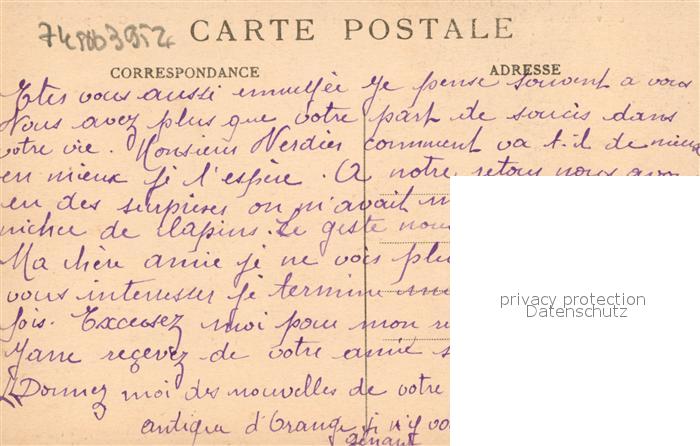 CARTE POSTALE
CORRESPONDANCE
ADRESSE
Etes vous aussi ennuyée Je pense souvent a vous
Vous avez plus que votre part de soucis dans
votre vie. Monsieur Verdier comment va t-il de mieux
en mieux je l'espère. A notre retour nous avons
eu des surprises on m'avait
nichee de lapins. Le geste nous
Ma chère amie je ne vois plu
vous interesser je termine
fois. Excusez moi pour mon
recevez de votre amie
Donnez moi des nouvelles de votre
antique d'Orange je n'y
privacy protection
Datenschutz